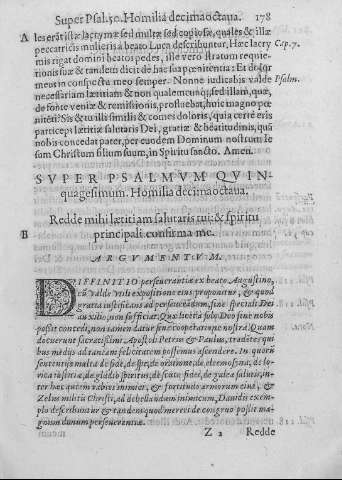 Super Psal. 50. Homilia decimaoctaua. 178
A les erāt istæ lacrymæ sed multæ sed copiosæ, quales & illæ
peccatricis mulieris a beato Luca describuntur, Hæc lacry Cap. 7.
mis rigat domini beatos pedes, ille vero stratum requie-
tionis suæ & tandem dicit de hac sua pœnitentia: Et dolor
meus in conspectu meo semper. Nonne iudicabis valde Psalm.
necessariam lætitiam & non qualemcunq; sed illam, quæ,
de fonte veniæ & remissionis, profluebat, huic magno pœ
nitenti? Sis & tu illi similis & comes doloris, quia certe eris
particeps lætitiæ salutaris Dei, gratiæ & beatitudinis, quā
nobis concedat pater, per eundem Dominum nostrum Ie
sum Christum filium suum, in Spiritu sancto. Amen.
SVPER PSALMVM QVIN-
quagesimum. Homilia decimaoctaua.
Redde mihi lætitiam salutaris tui: & spiritu
B principali confirma me.
ARGVMENTVM.
DIFFINITIO perseuerantiæ ex beato Augustino,
cū valde vtili expositione eius proponitur, & quod
gratia iustificans ad perseuerādum, sine speciali Dei
auxilio, non sufficiat. Quæ licet à solo Deo sine nobis
possit concedi, non tamen datur sine cooperatione nostra: Quam
docuerunt sacratissimi Apostoli Petrus & Paulus, traditis gra
bus medijs ad tantam felicitatem possemus ascendere. In quorū
sententijs multa de fide, de spe, de oratione, de eleemosyna, de lo-
rica iustitiæ, de gladio spiritus, de scuto fidei, de galea salutis, in-
ter hæc autem rabies inimici, & fortitudo armorum eius, &
Zelus militis Christi, ad debellandum inimicum, Dauidis exem-
plo describuntur & tandem quod meret de congruo possit ma-
gnum donum perseuerantiæ.
Z 2 Redde